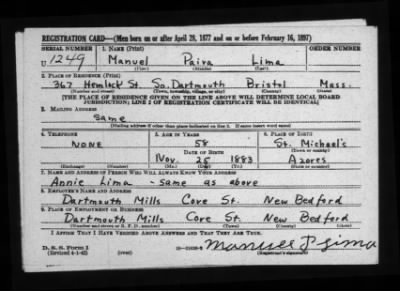 REGISTRATION CARD—(Men born on or after April 28, 1877 and on or before February 16, 1897)
SERIAL NUMBER 1. NAME (Print) ORDER NUMBER
U 1249 Manuel Paiva Lima
(First) (Middle) (Last)
2. PLACE OF RESIDENCE (Print)
367 Hemlock St. So. Dartmouth Bristol Mass.
(Number and street) (Town, township, village, or city) (County) (State)
[THE PLACE OF RESIDENCE GIVEN ON THE LINE ABOVE WILL DETERMINE LOCAL BOARD
JURISDICTION; LINE 2 OF REGISTRATION CERTIFICATE WILL BE IDENTICAL]
3. MAILING ADDRESS
Same
[Mailing address if other than place indicated on line 2. If same insert word same]
4. TELEPHONE 5. AGE IN YEARS 6. PLACE OF BIRTH
NONE 58 St. Michael's
DATE OF BIRTH (Town or county)
Nov. 25 1883 Azores
(Exchange) (Number) (Mo.) (Day) (Yr.) (State or country)
7. NAME AND ADDRESS OF PERSON WHO WILL ALWAYS KNOW YOUR ADDRESS
Annie Lima - Same as above
8. EMPLOYER'S NAME AND ADDRESS
Dartmouth Mills Cove St. New Bedford
9. PLACE OF EMPLOYMENT OR BUSINESS
Dartmouth Mills Cove St. New Bedford
(Number and street or R. F. D. number) (Town) (County) (State)
I AFFIRM THAT I HAVE VERIFIED ABOVE ANSWERS AND THAT THEY ARE TRUE.
D. S. S. Form 1
(Revised 4-1-42) (over) Manuel P Lima
(Registrant's signature)